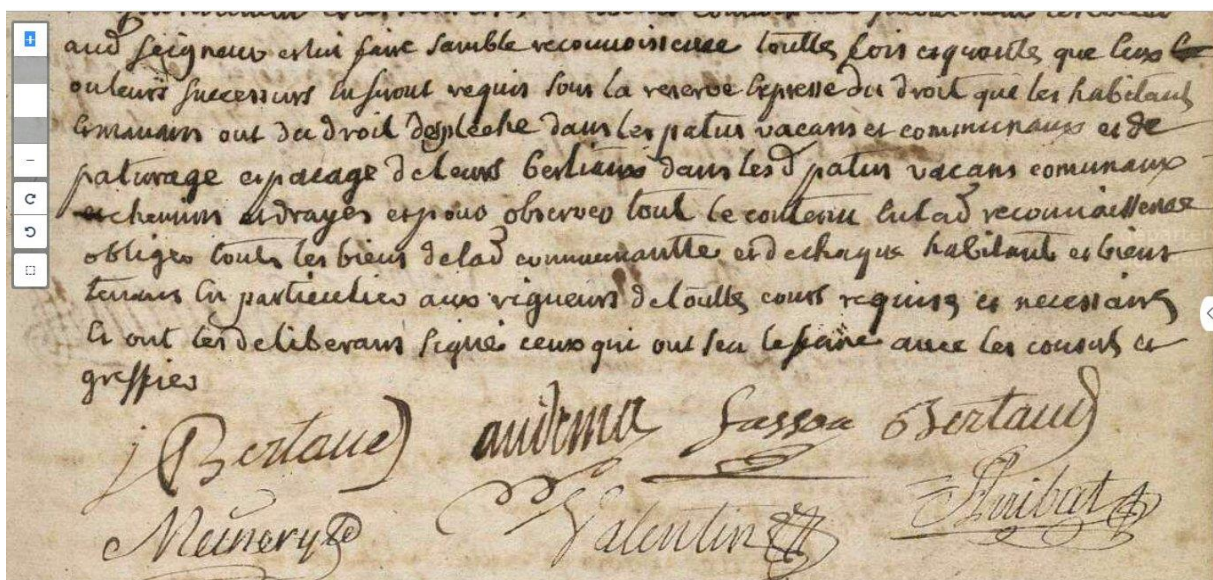 aud Seigneur et lui faire samble reconnoissence touttes fois et quantes que eux
ou leurs successeurs en seront requis sous la reserve expresse du droit que les habitans
et manans ont du droit despleche dans les patus vacans et communaux et de
paturage et pacage de leurs bestiaux dans lesd patus vacans comunaux
et chemins et drayes et pour observer tout le contenu en lad reconnaissense
obliger touts les biens de lad communautté et de chaque habitant et bient
tenans en particulier aux rigueurs de touttes cours requises et necessaires
et ont les deliberans signé ceux qui ont seu le faire avec les consuls et
greffier
j Bertaud audema Bertaud
Meinery Valentin